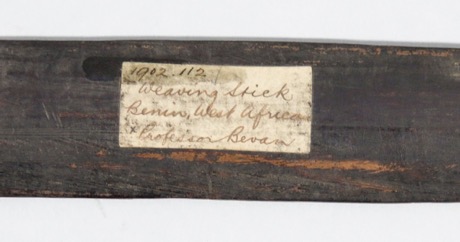 1902.112
Weaving Stick
Benin, West Africa
Professor Bevan